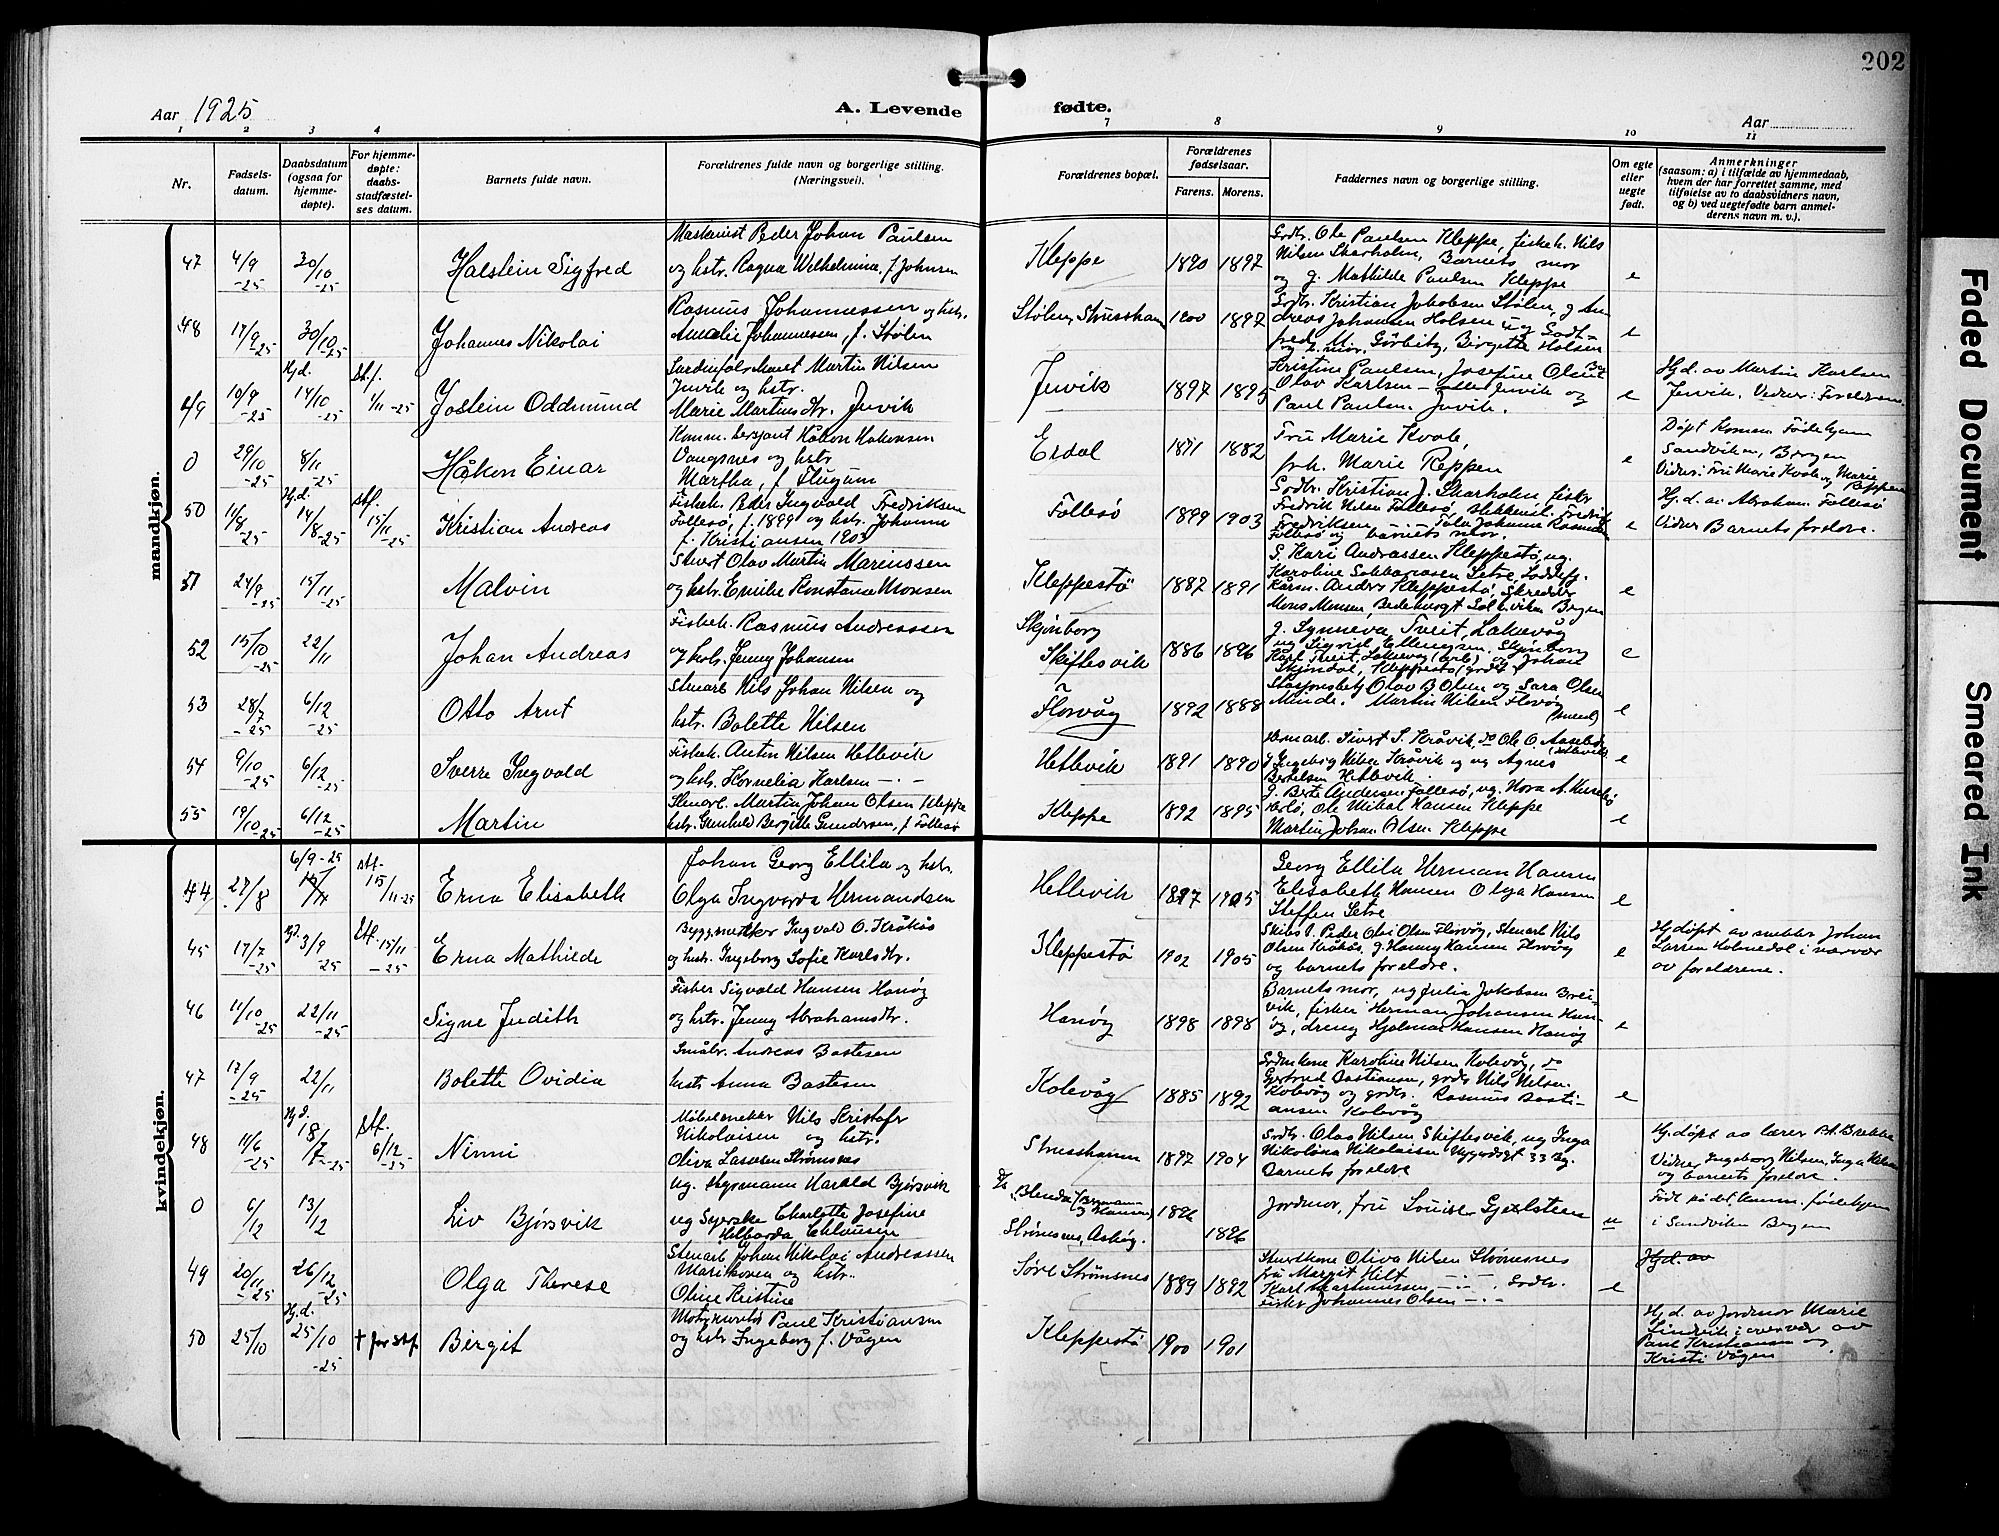 202
Aar 1925
A. Levende
fødte.
Aar
1 2 3 4 7 8 9 10 11
Nr.
Fødsels-
datum.
Daabsdatum
(ogsaa for
hjemme-
døpte).
For hjemme-
døpte:
daabs-
stadfæstel-
ses datum.
Barnets fulde navn.
Forældrenes fulde navn og borgerlige stilling.
(Næringsvei).
Forældrenes bopæl.
Forældrenes
fødselsaar.
Farens. Morens.
Faddernes navn og borgerlige stilling.
Om egte
eller
uegte
født.
Anmerkninger
(saasom: a) i tilfælde av hjemmedaab,
hvem der har forrettet samme, med
tilføielse av to daabsvidners navn,
og b) ved uegtefødte barn anmel-
derens navn m. v.).
mandkjøn.
47 4/9 -25 30/10 -25 Halstein Sigfred
Maskinist Peder Johan Paulsen
og hstr. Ragna Wilhelmina, f. Johnsen
Kleppe 1890 1897
Godtr. Ole Paulsen Kleppe, fiskeh. Nils
Nilsen Skarholm, Barnets mor
og g. Mathilde Paulsen Kleppe
e
48 17/9 -25 30/10 -25 Johannes Nikolai
Rasmus Johannessen og hstr.
Amalie Johannessen, f. Stølen
Stølen, Strusshamn 1900 1897
Kristian Jakobsen Stølen, g. An
dreas Johansen Holsen
mor. Birgitte Holsen
e
49 10/9 -25 Hj.d. 14/10 -25 Stf. 1/11 -25 Jostein Oddmund
Martin Nilsen
Juvik og hstr.
Marie Martinsdtr. Juvik
Juvik 1897 1895
Kristine Paulsen, Josefine Olsen
Olav Karlsen - alle Juvik og
Paul Paulsen. Juvik.
e
Hj.d. av Martin Karlsen
Juvik. Vidner: Foreldrene.
0 29/10 -25 8/11 -25 Håkon Einar
Komm. sersjant Håkon Håkonsen
Vangsnes og hstr
Martha, f. Flugum
Erdal 1871 1882
Fru Marie Kvale,
frk. Marie Reppen
e
Døpt Komm. Fødehjem
Sandviken, Bergen
Vidner: Fru Marie Kvale og Marie
Reppen
50 11/8 -25 Hj.d. 14/8 -25 stf. 15/11 -25 Kristian Andreas
Fiskeh. Peder Ingvald Fredriksen
Follesø, f. 1899 og hstr. Johanne
f. Kristiansen 1903
Follesø 1899 1903
Godtr. Kristian J. Skarholm, fisker
Fredrik Nilsen Follesø, Fredrik
Fredriksen Johanne Rasmussen
Follesø og barnets mor.
e
Hj.d. av Abraham Follesø
Vidner Barnets foreldre.
51 24/9 -25 15/11 -25 Malvin
Olav Martin Mariussen
og hstr. Emilie Konstanse Monsen
Kleppestø 1887 1891
Andreassen Kleppestø, ug.
Karoline Sakkariasen Setre, Loddefj.
Anders Kleppestø, Skredder
Mons Monsen, Sandviken Bergen
e
52 15/10 -25 22/11 Johan Andreas
Fiskeh. Rasmus Andreassen
og hstr. Jenny Johansen
Skjønborg
Skiftesvik 1886 1896
g. Synneva Tveit, Laksevåg
ug Sigrid Ellingsen. Skjønborg
Karl Tveit, Laksevåg og Johan
Skjøndal, Kleppestø
e
53 28/7 -25 6/12 -25 Otto Arnt
Stenarb. Nils Johan Nilsen og
hstr. Bolette Nilsen
Florvåg 1892 1888
Stasjonsbetj. Olav B Olsen og Sara Olsen
Minde. Martin Nilsen Florvåg
e
54 9/10 -25 6/12 -25 Sverre Ingvald
Fiskeh. Antin Nilsen Hetlevik
og hstr. Kornelia Karlsen
Hetlevik 1891 1890
Sivert S. Kråvik, do Ole O. Aasebø
g Ingeborg Nilsen Kråvik og ug Agnes
Bertelsen Hetlevik.
e
55 19/10 -25 6/12 -25 Martin
Stenarb. Martin Johan Olsen Kleppe
hstr. Gunhild Bergitte Gundersen, f. Follesø
Kleppe 1892 1895
g. Berte Andersen Follesø, ug. Nora A.
Ole Mikal Hansen Kleppe
Martin Johan Olsen Kleppe
e
kvindekjøn.
44 27/8 6/9-25 15/11 stf. 15/11-25 Erna Elisabeth
Johan Georg Ellila og hstr.
Olga Ingvarda Hermandsen
Hetlevik 1897 1905
Georg Ellila Herman Hansen
Elisabeth Hansen Olga Hansen
Steffen Setre
e
45 17/7 -25 3/9 -25 Stf. 15/11 -25 Erna Mathilde
Byggmester Ingvald O. Kråkås
og hstr. Ingeborg Sofie Karlsdtr.
Kleppestø 1902 1905
Peder Olai Olsen Florvåg, Stenarb Nils
Olsen Kråkås, g. Hanny Hansen Florvåg
og barnets foreldre.
e
Hj.døpt av snekker Johan
Larsen Holmedal i nærvær
av foreldrene.
46 11/10 -25 22/11 -25 Signe Judith
Fisker Sigvald Hansen Hanøy
og hstr. Jenny Abrahamsdtr.
Hanøy 1898 1898
Barnets mor, ug Julia Jakobsen Brei-
vik, fisker Herman Johansen Han-
øy, dreng Hjalmar Hansen Hanøy
e
47 17/9 -25 22/11 Bolette Ovidia
Småbr. Andreas Bastesen
hstr Anna Bastesen
Kolevåg 1885 1892
Karoline Nilsen Kolevåg, do
Gjertrud Bastiansen, Nils Nilsen.
Kolevåg og grdtr. Rasmus Basti-
ansen Kolevåg
e
48 11/6 -25 Hj.d. 18/7 -25 Stf. 6/12 -25 Ninni
Møbelsnekker Nils Kristofer
Nikolaisen og hstr.
Oliva Larsen Strømsnes
Strusshamn 1897 1904
Godtr. Olav Nilsen Skiftesvik, ug Inga
Nikoline Nikolaisen Nygårdsgt 33 Bg.
Barnets foreldre
e
Hj.døpt av lærer Brekke
Vidner Ingeborg Nilsen, Inga Nilsen
og barnets foreldre.
0 6/12 13/12 Liv Bjørsvik
Ug. styrmann Harald Bjørsvik
ug Syerske Charlotte Josefine
Strømsnes, Askøy. 1896 1896
Jordmor, fru Louise Gjertsen
u
Født på det komm. fødehjem
i Sandviken Bergen
49 20/11 -25 26/12 -25 Olga Therese
Stenarb. Johan Nikolai Andreassen
Marikoven og hstr.
Oline Kristine
Søre Strømsnes 1889 1892
Oliva Nilsen Strømsnes
fru Margit Hilt
Karl Rasmussen
Fisker Johannes Olsen
e
Hj.d. av
50 25/10 Hj.d. 25/10 -25 † før stf. Birgit
Paul Kristiansen
og hstr Ingeborg f. Vågen
Kleppestø 1900 1901
Hj.d. av Jordmor Marie
Lindvik i overvær av
Paul Kristiansen og
Kristi Vågen
Faded Document
Smeared Ink